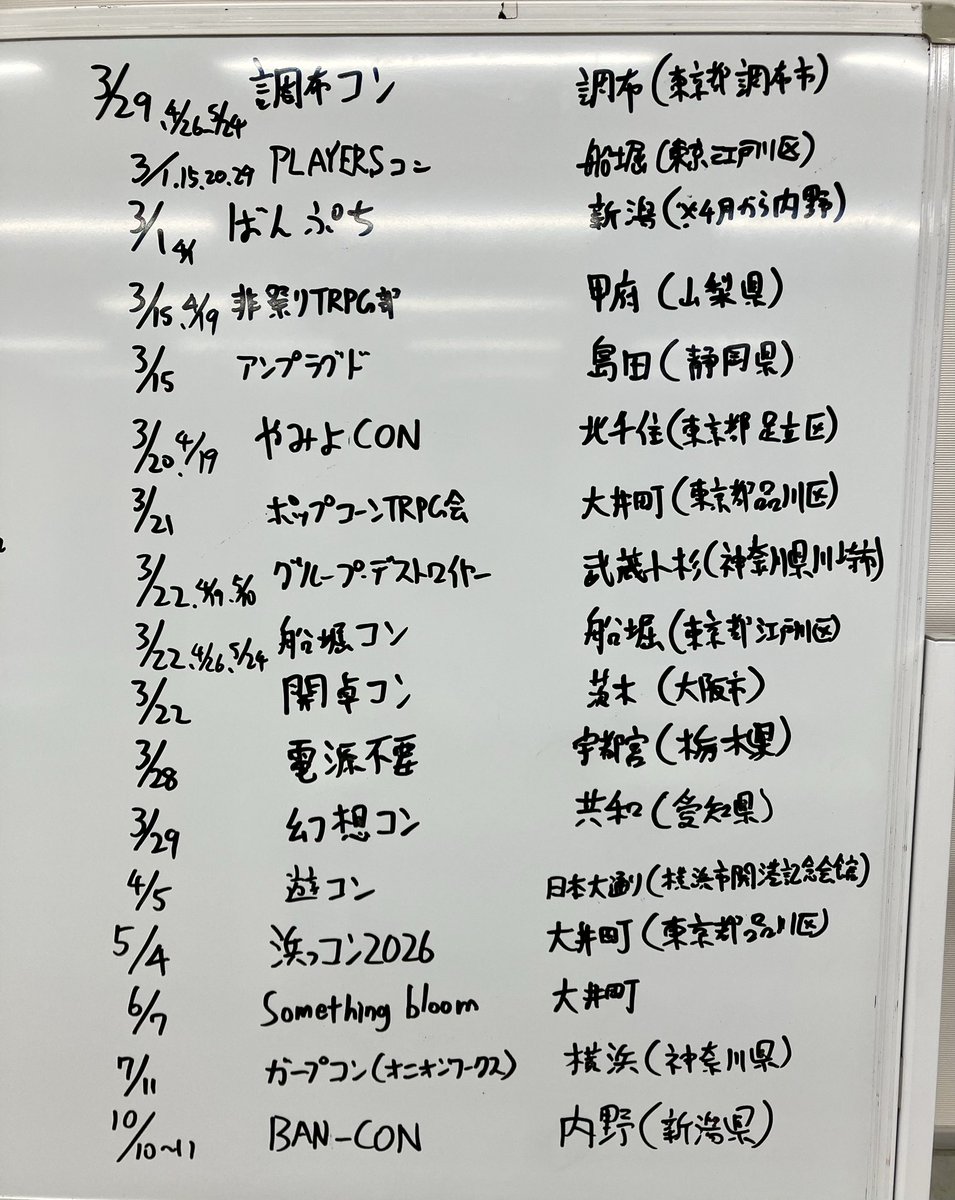 3/29、4/26、5/24 調布コン 調布(東京都調布市)
3/1.15.20.29 PLAYERSコン 船堀(東京江戸川区)
3/1 4/1 ばんぷち 新潟(※4月から内野)
3/15、4/19 非祭りTRPG部 甲府(山梨県)
3/15 アンプラグド 島田(静岡県)
3/20、4/19 やみよCON 北千住(東京都足立区)
3/21 ポップコーンTRPG会 大井町(東京都品川区)
3/22、 グループ・デストロイヤー 武蔵小杉(神奈川県川崎市)
3/22、4/26、5/24 船堀コン 船堀(東京都江戸川区)
3/22 開卓コン (大阪市)
3/28 電源不要 宇都宮(栃木県)
3/29 幻想コン 共和(愛知県)
4/5 遊コン 日本大通り(横浜市開港記念会館)
5/4 浜っコン2026 大井町(東京都品川区)
6/7 Something bloom 大井町
7/11 ガープコン(オニオンワークス) 横浜(神奈川県)
10/10~11 BAN-CON 内野(新潟県)